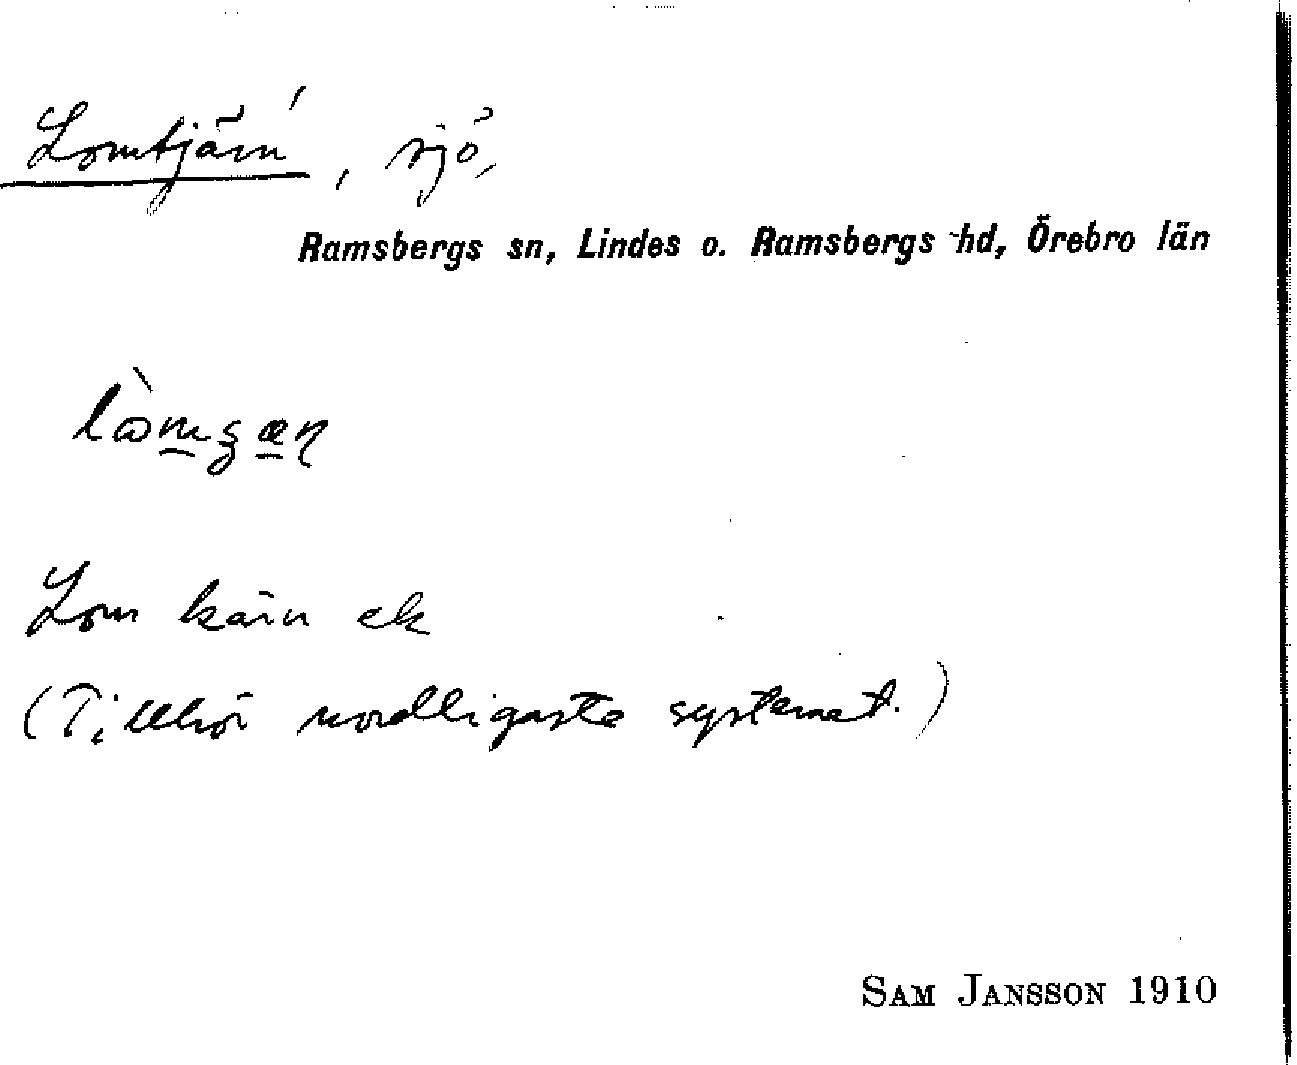 Lomtjärn, sjö,
Ramsbergs sn, Lindes o. Ramsbergs hd, Örebro län
Lom kärn ek
(Tillhör nordligaste systemet.)
SAM JANSSON 1910